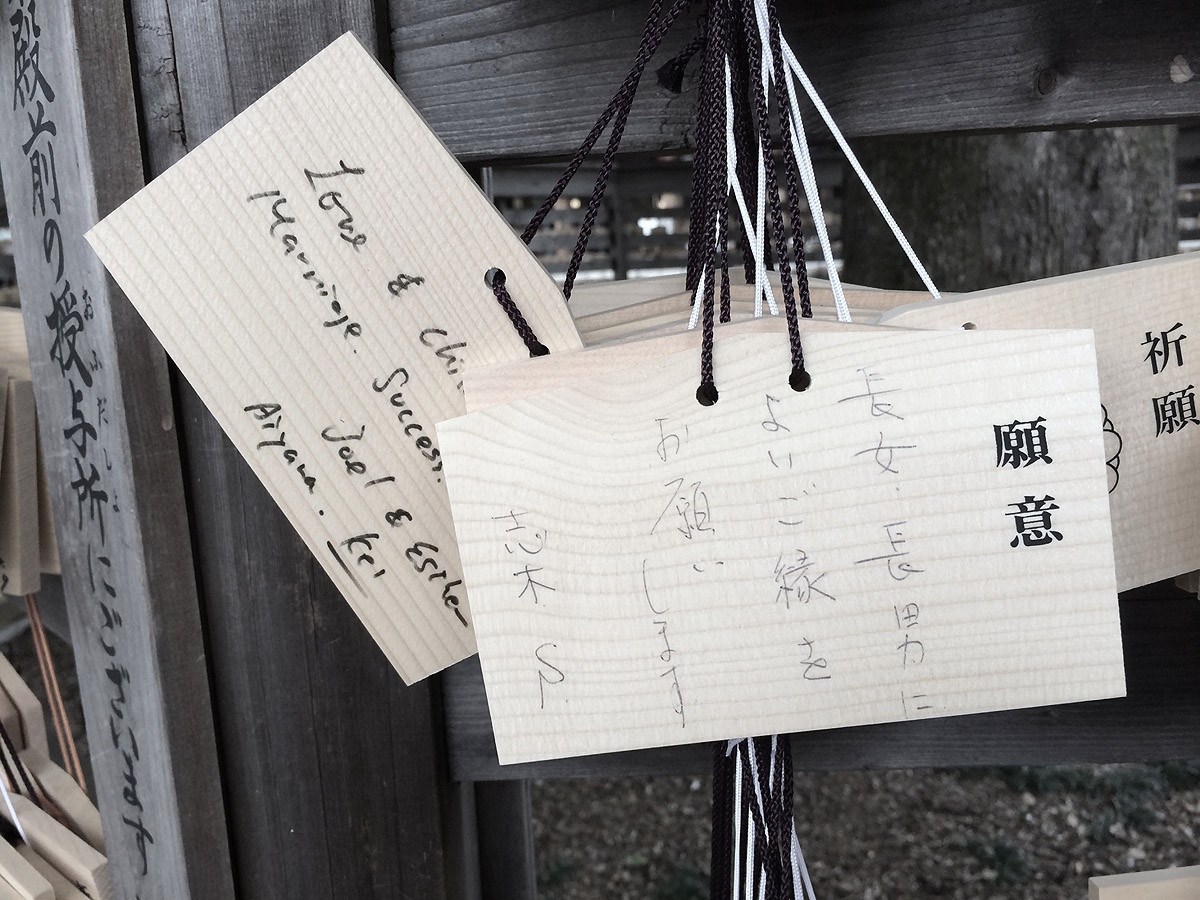 願意
長女・長男に
よいご縁を
お願いします
志木 S.
祈願
Love & Chi
Marriage. Success.
Joel & Esthe
Aiyana. Kei
殿前の授与所にございます
おふだしょ